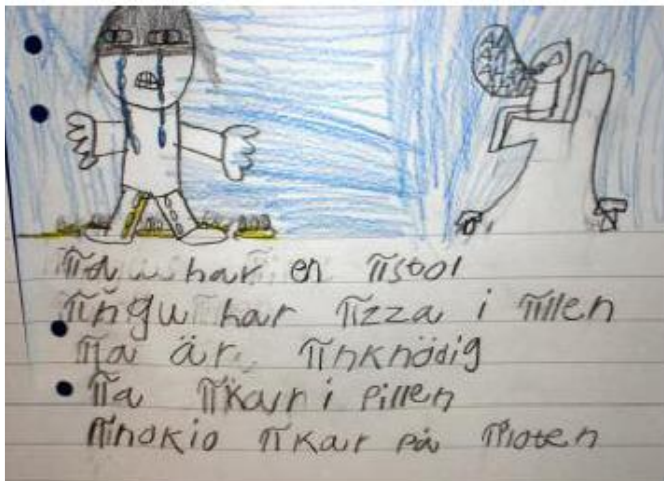 πa har en πstol
πngu har πzza i πllen
πa är πnknödig
πa πkar i pillen
πnokio πkar på πloten